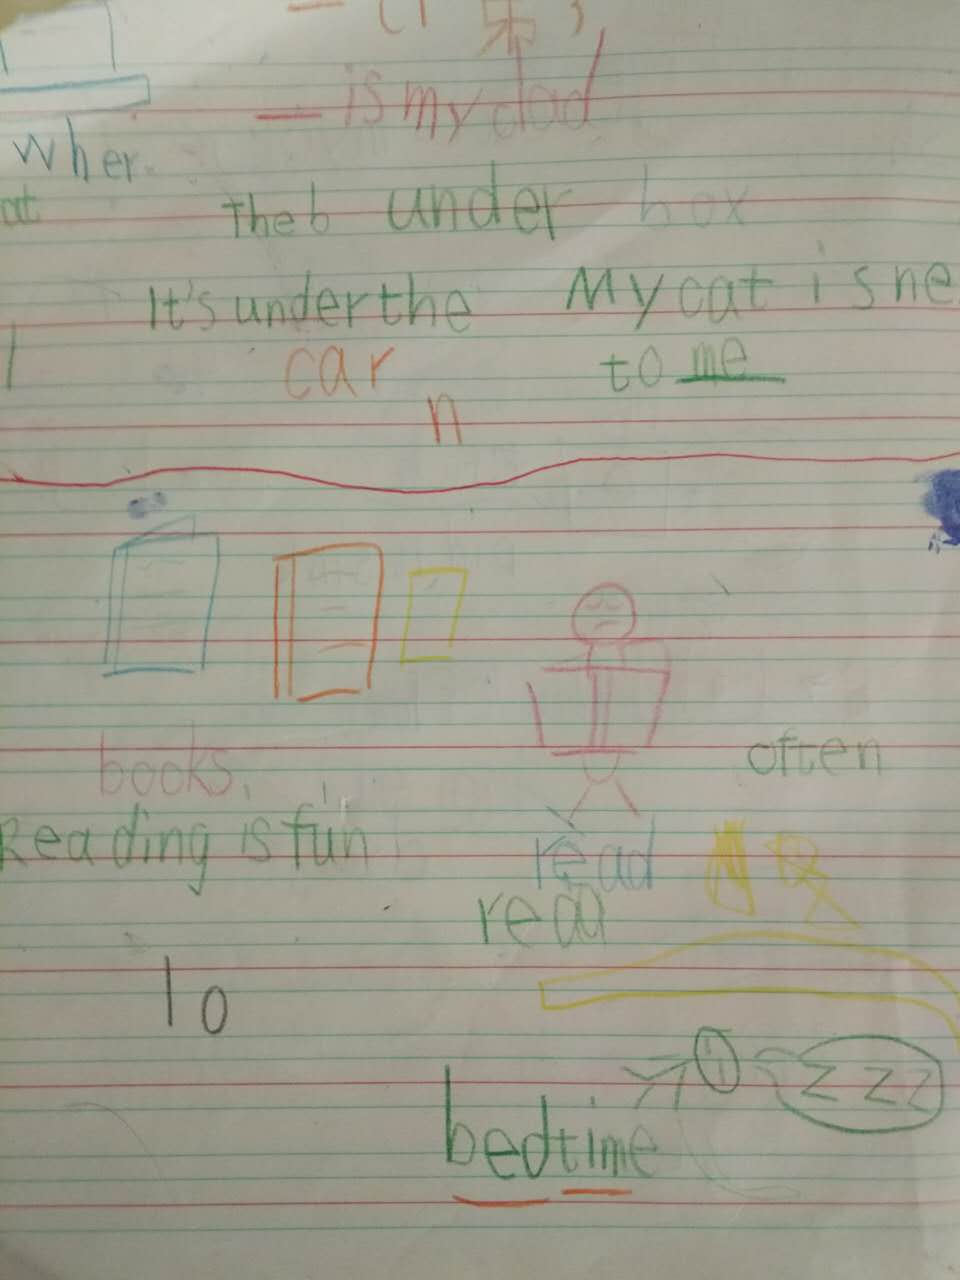 — is my dad
wher
at The b under box
It's under the My cat is ne
car to me
n
books. often
Reading is fun read
read
lo
bedtime
zzz